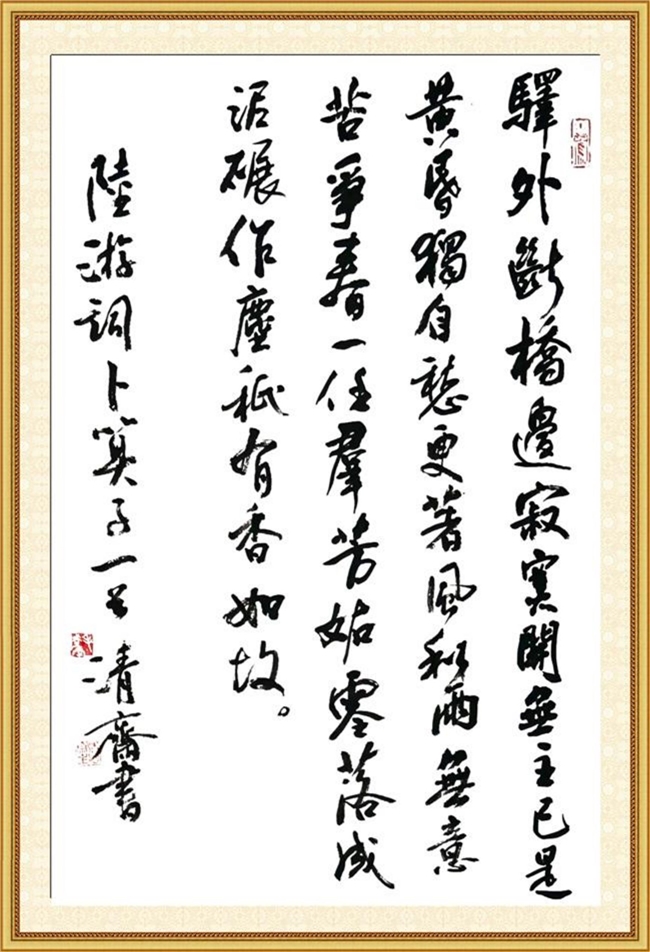 驛外斷橋邊寂寞開無主已是
黃昏獨自愁更著風和雨無意
苦爭春一任羣芳妬零落成
泥碾作塵衹有香如故。
陸游詞卜算子一首 清齋書